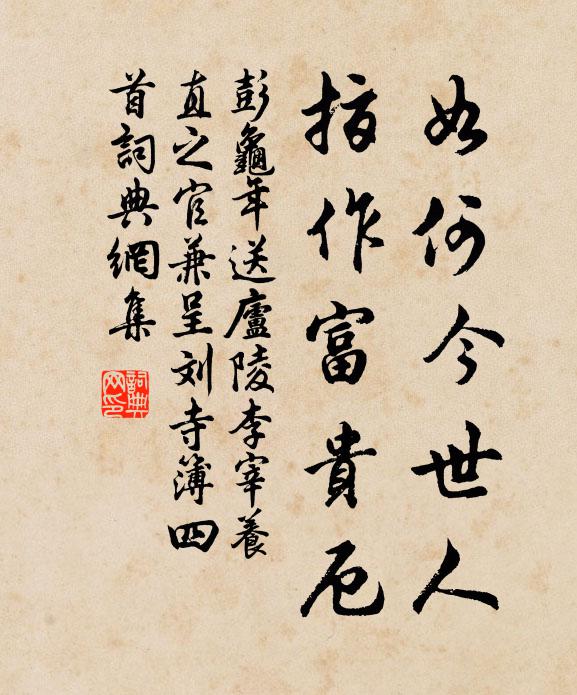 如何今世人
指作富貴卮
彭龜年送廬陵李宰養
直之官兼呈刘寺簿四
首詞典網集
詞典
网印